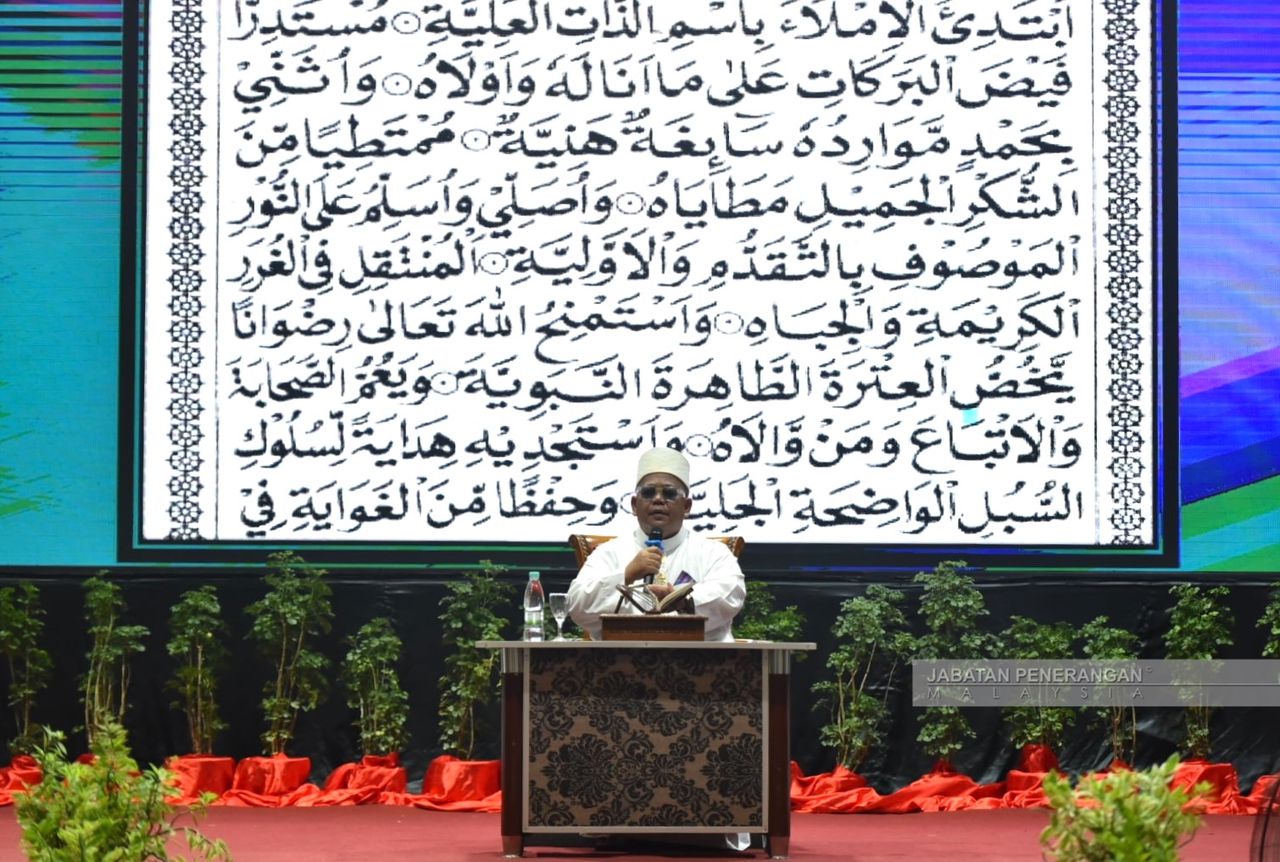 اَبْتَدِئُ الْاِمْلَاءَ بِاسْمِ الذَّاتِ الْعَلِيَّةِ ۞ مُسْتَدِرًّا
فَيْضَ الْبَرَكَاتِ عَلٰى مَا اَنَالَهُ وَاَوْلَاهُ ۞ وَاُثَنِّيْ
بِحَمْدٍ مَّوَارِدُهُ سَائِغَةٌ هَنِيَّةٌ ۞ مُمْتَطِيًا مِّنَ
الشُّكْرِ الْجَمِيْلِ مَطَايَاهُ ۞ وَاُصَلِّيْ وَاُسَلِّمُ عَلَى النُّوْرِ
الْمَوْصُوْفِ بِالتَّقَدُّمِ وَالْاَوَّلِيَّةِ ۞ الْمُنْتَقِلِ فِي الْغُرَرِ
الْكَرِيْمَةِ وَالْجِبَاهِ ۞ وَاَسْتَمْنِحُ اللهَ تَعَالٰى رِضْوَانًا
يَّخُصُّ الْعِتْرَةَ الطَّاهِرَةَ النَّبَوِيَّةَ ۞ وَيَعُمُّ الصَّحَابَةَ
وَالْاَتْبَاعَ وَمَنْ وَّالَاهُ ۞ وَاَسْتَجْدِيْهِ هِدَايَةً لِّسُلُوْكِ
السُّبُلِ الْوَاضِحَةِ الْجَلِيَّةِ ۞ وَحِفْظًا مِّنَ الْغَوَايَةِ فِيْ
JABATAN PENERANGAN©
MALAYSIA